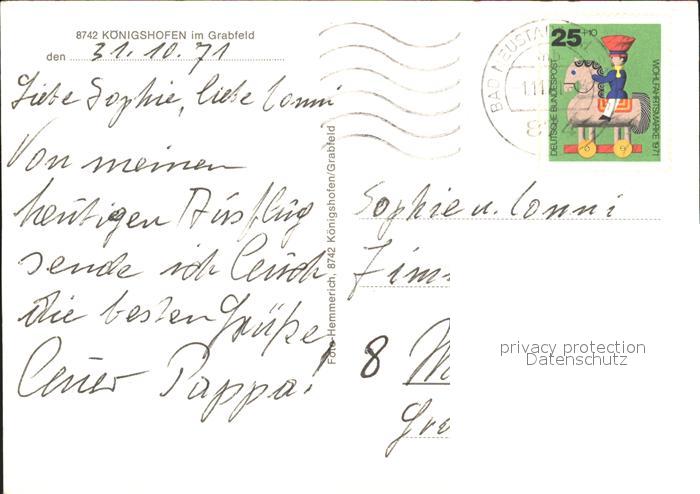 8742 KÖNIGSHOFEN im Grabfeld
den 31.10.71
Liebe Sophie, liebe Conni
Von meinen
heutigen Ausflug
sende ich Euch
die besten Grüße,
Euer Pappa!
Foto-Hemmerich, 8742 Königshofen/Grabfeld
BAD NEUSTADT
-1.11.
25+10
DEUTSCHE BUNDESPOST
WOHLFAHRTSMARKE 1971
Sophie u. Conni
Zim
8 M
Gro
privacy protection
Datenschutz